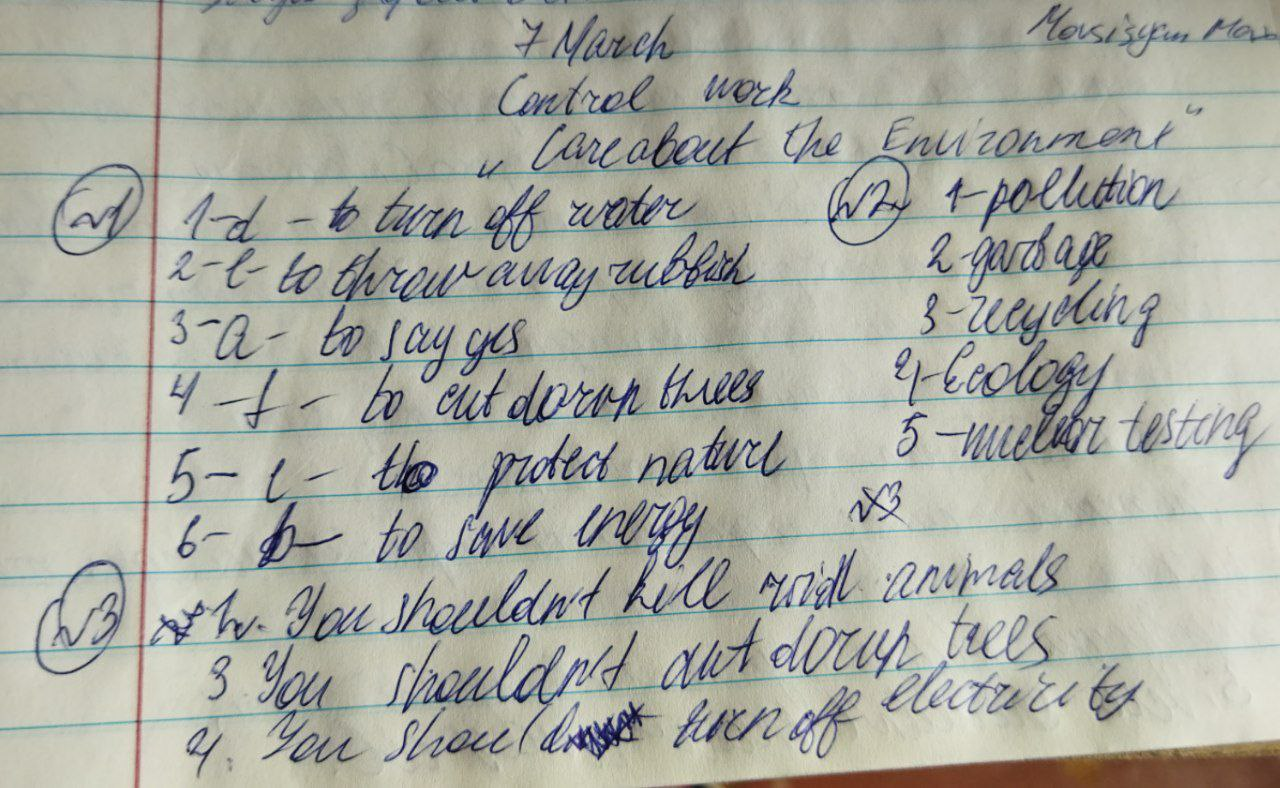 7 March
Control work
„Care about the Environment"
№1 1-d - to turn off water
2-e- to throw away rubbish
3-a- to say yes
4 -f - to cut down threes
5- c - to protect nature
6- b- to save energy
№2 1-pollution
2-garbage
3-recycling
4-Ecology
5-nuclear testing
№3
№3 1. You shouldn't kill wild animals
3. You shouldn't cut down trees
4. You should turn off electricity